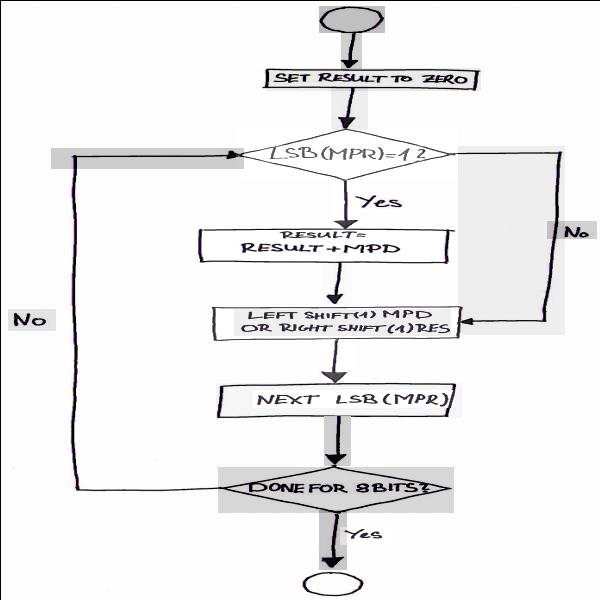 SET RESULT TO ZERO
LSB(MPR)=1?
Yes
No
RESULT=
RESULT+MPD
LEFT SHIFT(1) MPD
OR RIGHT SHIFT(1) RES
No
NEXT LSB(MPR)
DONE FOR 8BITS?
Yes